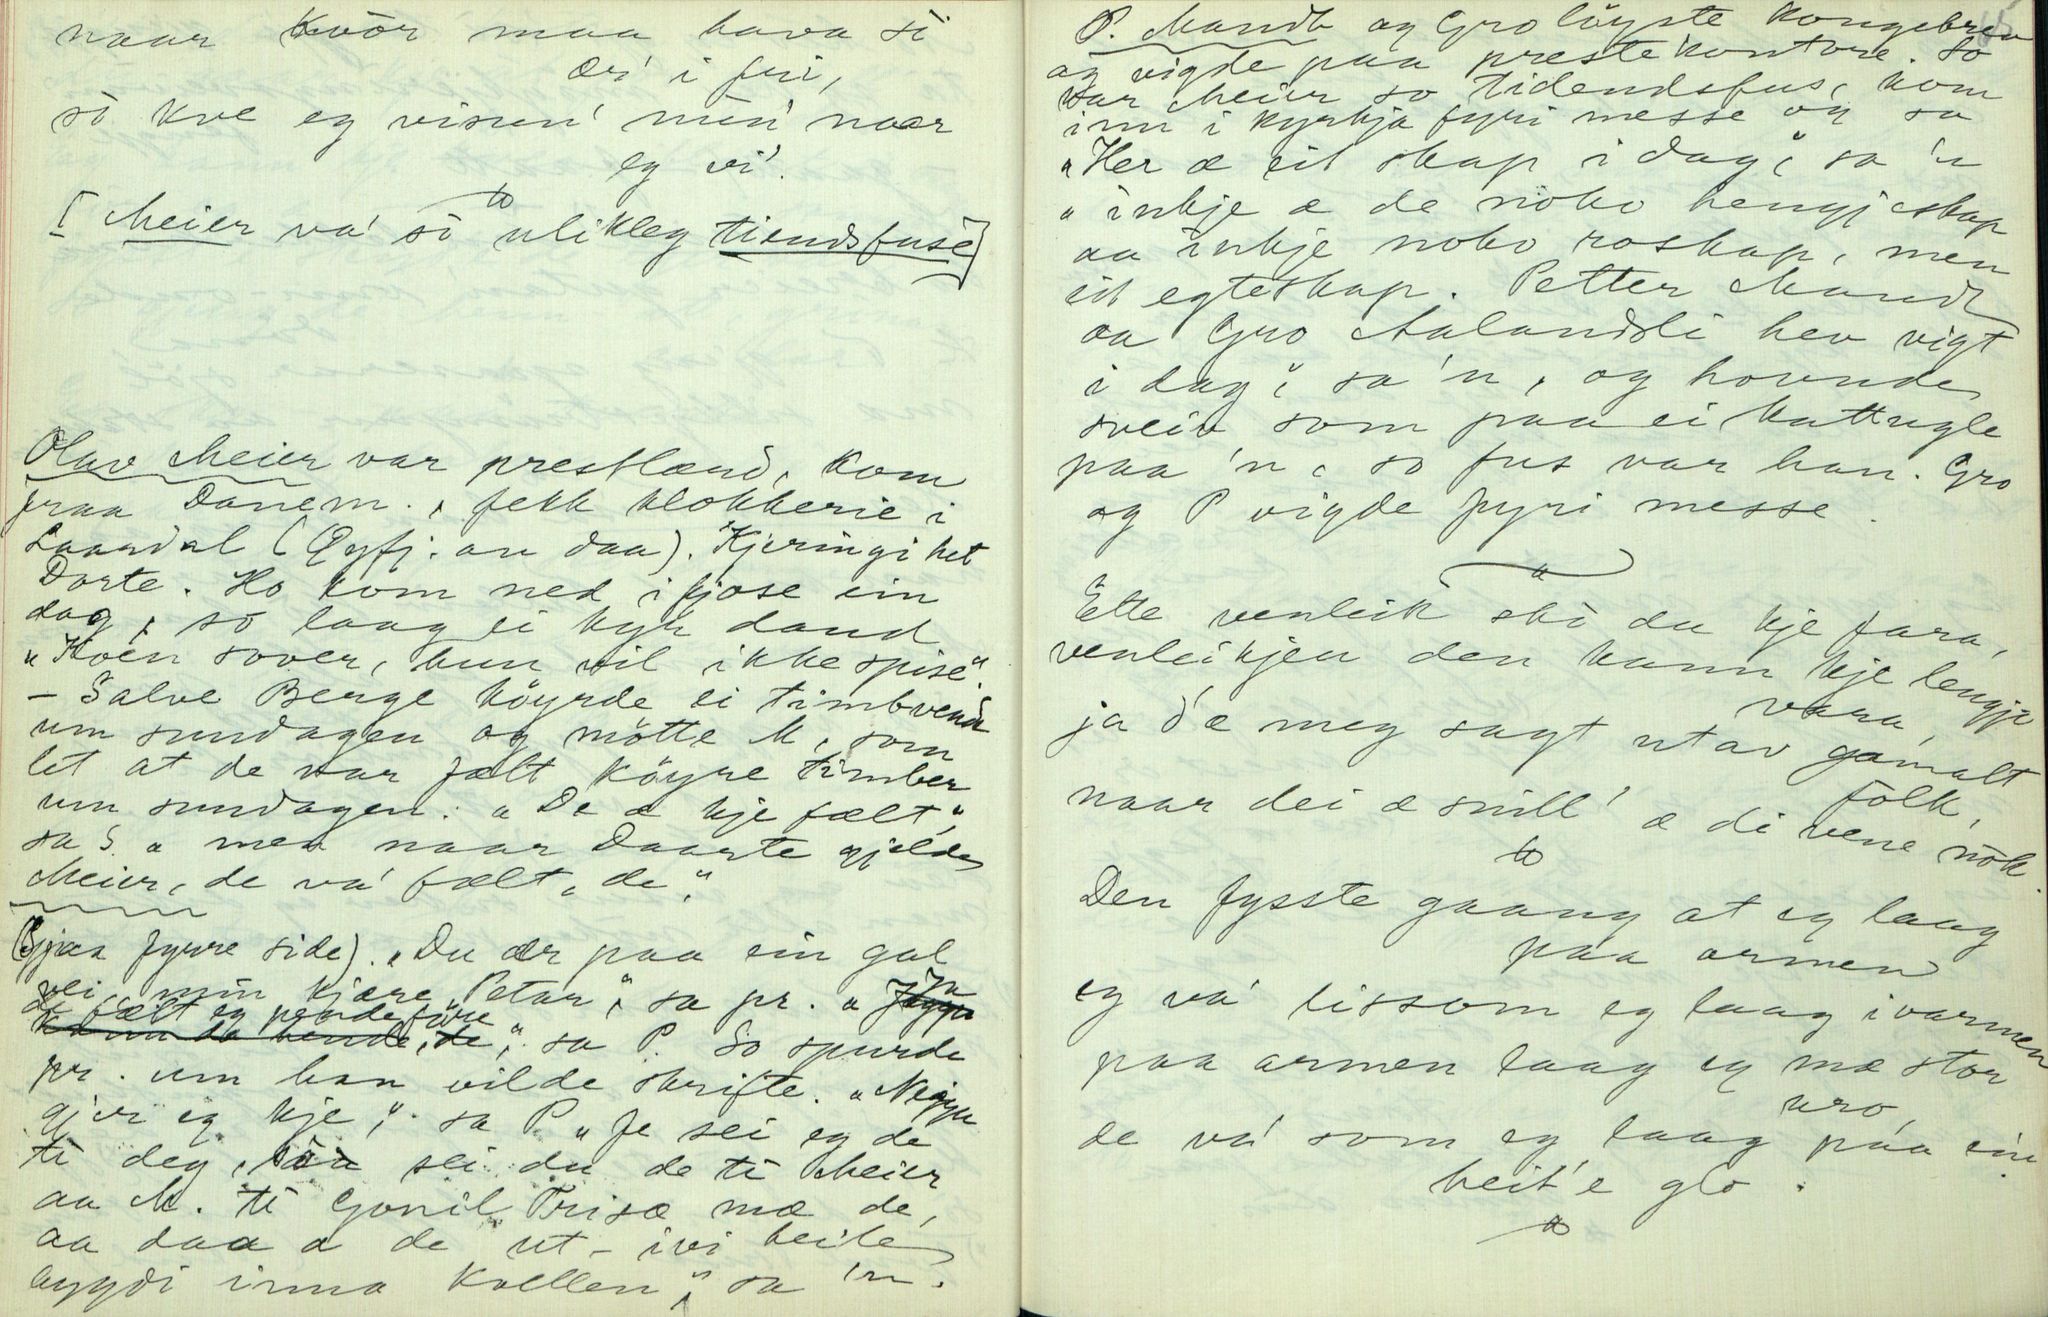 naar kvòr maa hava sì
ær' i firi,
sò kve eg visun' mìn' naar
eg vi'.
[Meier va' sò ulikleg tiendsfusè]
Olav Meier var prestlærd, kom
fraa Danem., fekk klokkerie i
Laardal (Qyfj. an daa). Kjeringi het
Dorte. Ho kom ned i fjose ein
dag, so laag ei kyr daud
"Koèn sover, hun vil ikke spise".
- Salve Berge köyrde ei timbr
um sundagen og mötte M, som
let at de var fælt köyre timber
um sundagen. "De æ kje fælt,"
sa S. " men naar Daarte gjelde
Meier, de va' fælt, de".
(Sjaa fyrre side). "Du ær paa ein gal
vei min kjære Petar", sa pr. " Ja
de fælt eg
", sa P. So spurde
pr. um han vilde skrifte. "Neggu
gjer eg kje", sa P. " Fe sei eg de
tì deg, sei du de tì Meier
aa M. tì Gonil Trisæ mæ de,
aa daa æ de ut-ivi heile
byggdi inna kvellen", sa 'n.
P. Mandt og Gro löyste kongebrev
og vigde paa prestekontore. So
var Meier so tidendsfus, kom
inn i kyrkja fyri messe og sa
"Her æ eit skap i dag", sa 'n
" inkje æ de noko hengjeskap
aa inkje noko roskap, men
eit egteskap. Petter Mandt
aa Gro Aalandsli hev vigt
i dag", sa 'n, og hovude
sveiv som paa ei kattugle
paa 'n, so fus var han. Gro
og P vigde fyri messe.
Ette venleik skì du kje fara,
venleikjen den kann kje lengje
vara,
ja d'æ meg sagt utav gamalt
folk,
naar dei æ snill' æ di vene nòk.
Den fysste gaang at eg laag
paa armen
eg va' lissom eg laag i varmen
paa armen laag eg mæ stor
uro,
de va' som eg laag paa ein
heit'e glo.